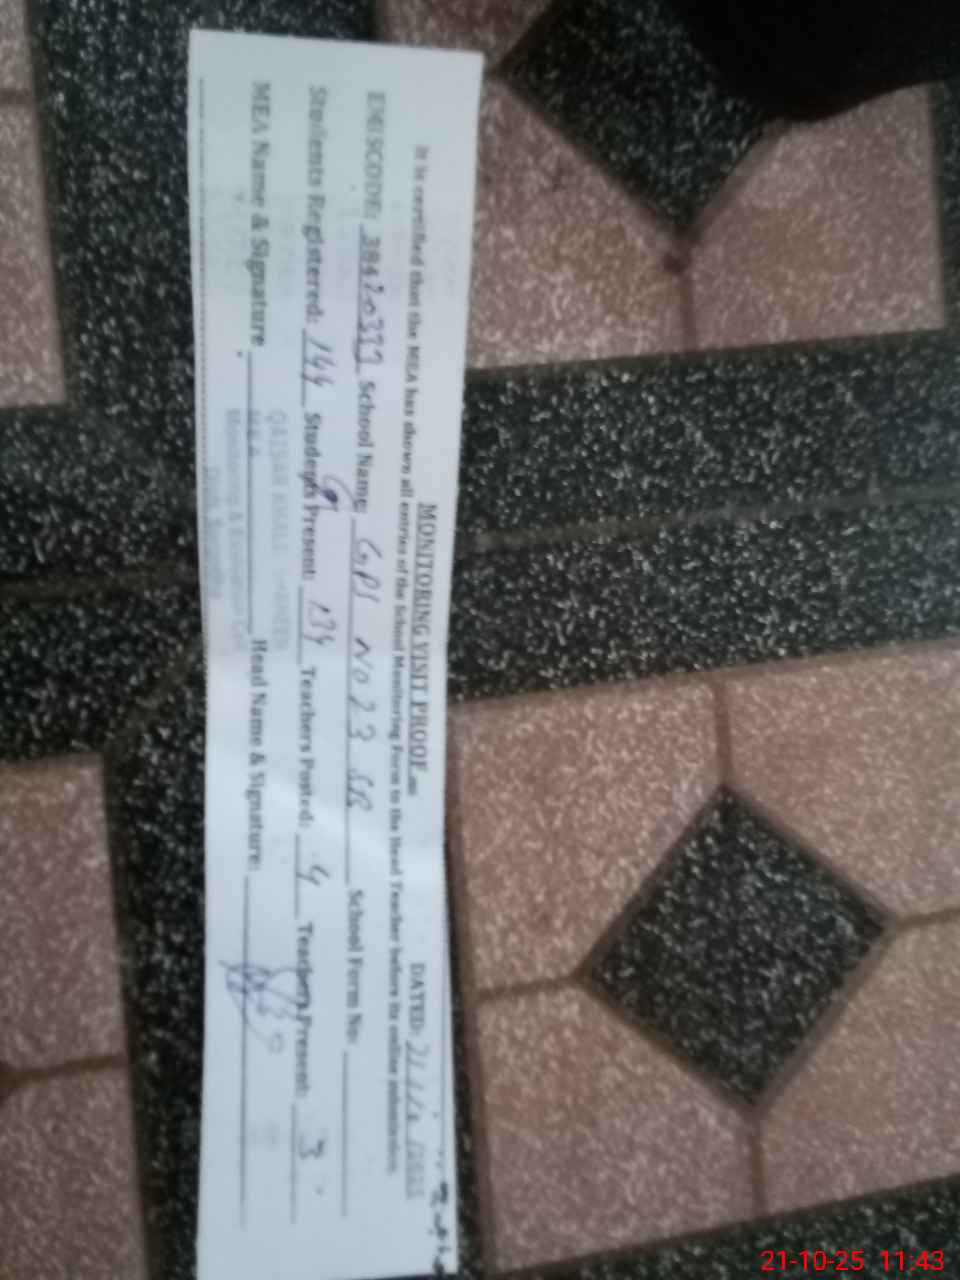 MONITORING VISIT PROOF DATED: 21/10/2025
It is certified that the MEA has shown all entries of the School Monitoring Form to the Head Teacher before its online submission.
EMISCODE: School Name: GPS NO 23 SR School Form No:
Students Registered: 144 Students Present: 134 Teachers Posted: 4 Teachers Present: 3
MEA Name & Signature Head Name & Signature:
MEA
Monitoring & Evaluation Cell
21-10-25 11:43